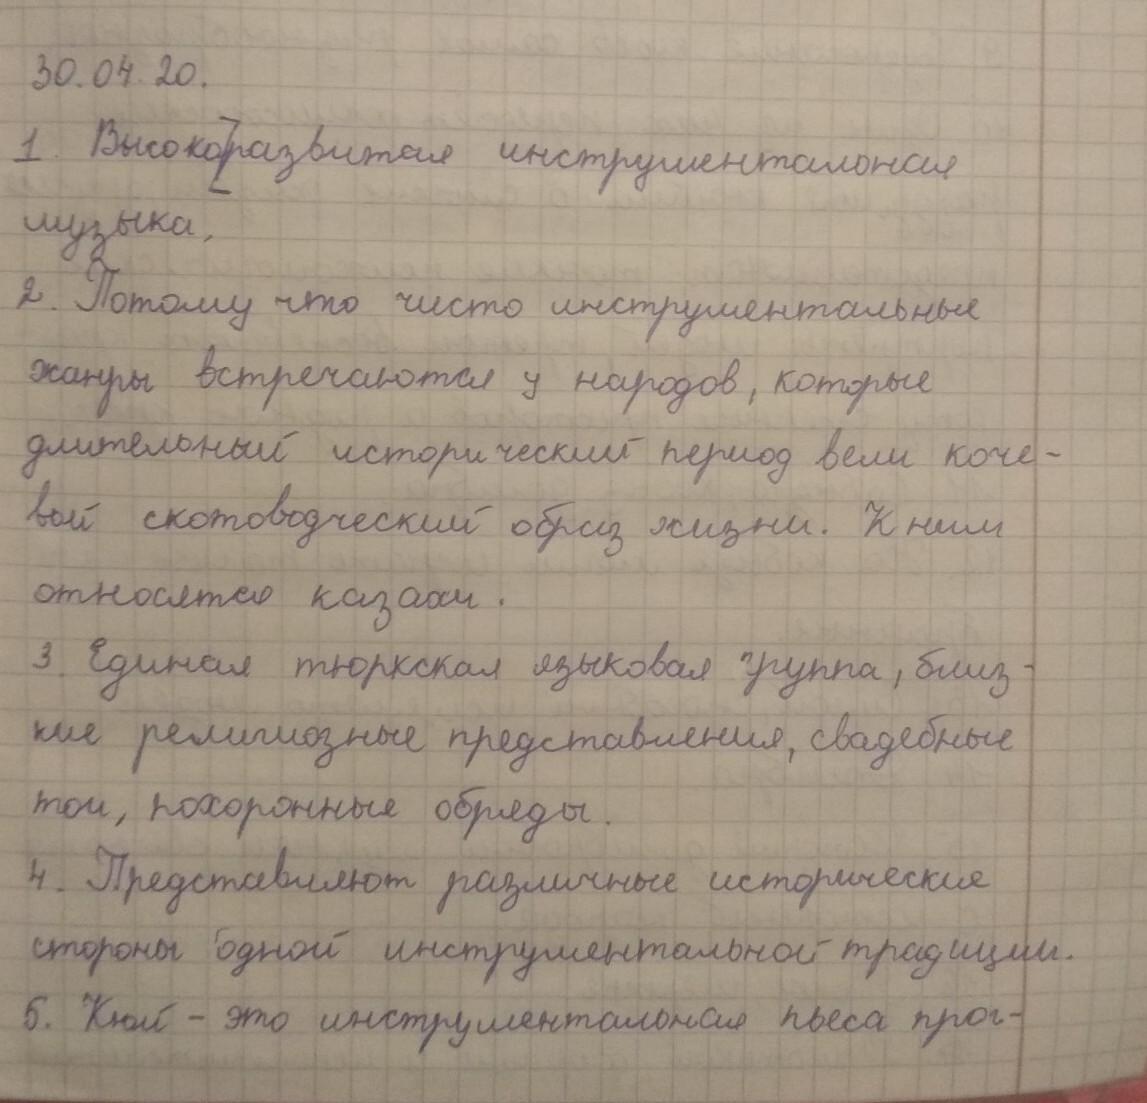 30.04.20.
1. Высоко[развитая инструментальная
музыка.
2. Потому что чисто инструментальные
жанры встречаются у народов, которые
длительный исторический период вели коче-
вой скотоводческий образ жизни. К ним
относятся казахи.
3 Единая тюркская языковая группа, близ-
кие религиозные представления, свадебные
тои, похоронные обряды.
4. Представляют различные исторические
стороны одной инструментальной традиции.
5. Кюй - это инструментальная пьеса прог-